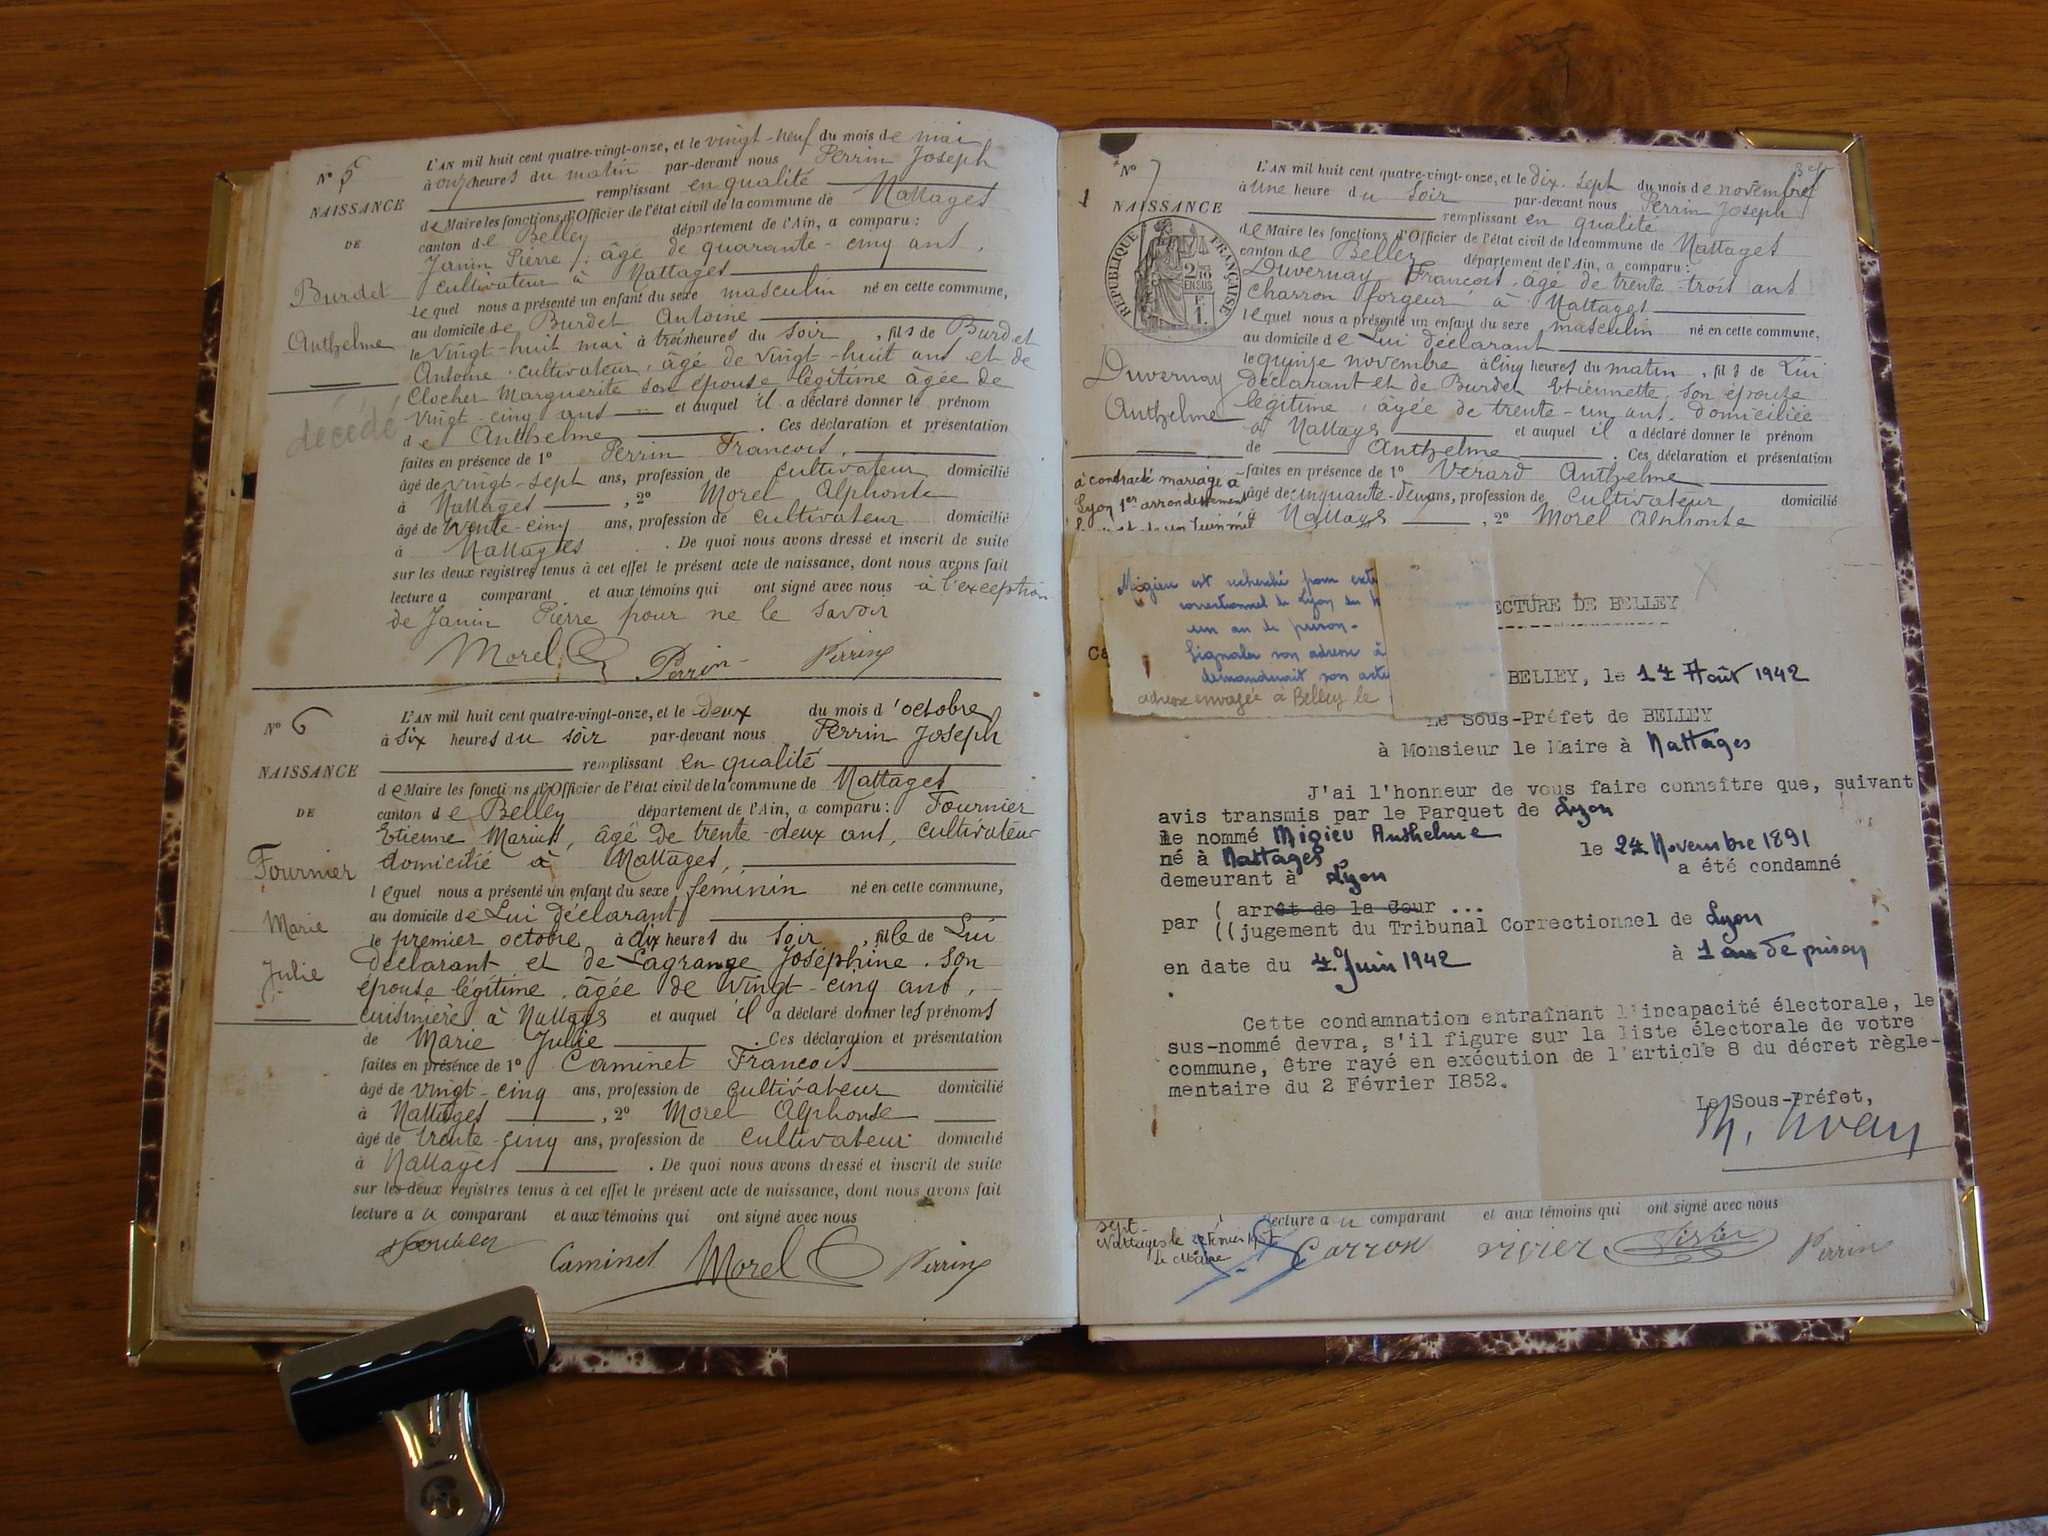 N° 5
NAISSANCE
DE
Burdet
Anthelme
décédé
L'AN mil huit cent quatre-vingt-onze, et le vingt-neuf du mois de mai
à onze heures du matin par-devant nous Perrin Joseph
remplissant en qualité
de Maire les fonctions d'Officier de l'état civil de la commune de Nattages
canton de Belley département de l'Ain, a comparu :
Janin Pierre, âgé de quarante-cinq ans,
cultivateur à Nattages
lequel nous a présenté un enfant du sexe masculin né en cette commune,
au domicile de Burdet Antoine
le vingt-huit mai à trois heures du soir, fils de Burdet
Antoine, cultivateur, âgé de vingt-huit ans et de
Clocher Marguerite son épouse légitime âgée de
vingt-cinq ans et auquel il a déclaré donner le prénom
de Anthelme. Ces déclaration et présentation
faites en présence de 1° Perrin François,
âgé de vingt-sept ans, profession de cultivateur domicilié
à Nattages, 2° Morel Alphonse
âgé de trente-cinq ans, profession de cultivateur domicilié
à Nattages. De quoi nous avons dressé et inscrit de suite
sur les deux registres tenus à cet effet le présent acte de naissance, dont nous avons fait
lecture a comparant et aux témoins qui ont signé avec nous à l'exception
de Janin Pierre pour ne le savoir
Morel Perrin Perrin
N° 6
NAISSANCE
DE
Fournier
Marie
Julie
L'AN mil huit cent quatre-vingt-onze, et le deux du mois d'octobre
à six heures du soir par-devant nous Perrin Joseph
remplissant en qualité
de Maire les fonctions d'Officier de l'état civil de la commune de Nattages
canton de Belley département de l'Ain, a comparu : Fournier
Etienne Marius, âgé de trente-deux ans, cultivateur
domicilié à Nattages,
lequel nous a présenté un enfant du sexe féminin né en cette commune,
au domicile de Lui déclarant
le premier octobre à dix heures du soir, fille de Lui
déclarant et de Lagrange Joséphine, son
épouse légitime, âgée de vingt-cinq ans,
cuisinière à Nattages et auquel il a déclaré donner les prénoms
de Marie Julie. Ces déclaration et présentation
faites en présence de 1° Caminet François
âgé de vingt-cinq ans, profession de cultivateur domicilié
à Nattages, 2° Morel Alphonse
âgé de trente-cinq ans, profession de cultivateur domicilié
à Nattages. De quoi nous avons dressé et inscrit de suite
sur les deux registres tenus à cet effet le présent acte de naissance, dont nous avons fait
lecture au comparant et aux témoins qui ont signé avec nous
Fournier Caminet Morel Perrin
N° 7
1
NAISSANCE
RÉPUBLIQUE FRANÇAISE
2/10 EN SUS
F.
1.
Duvernay
Anthelme
à contracté mariage à
Lyon 1er arrondissement
L'AN mil huit cent quatre-vingt-onze, et le dix-sept du mois de novembre
à une heure du soir par-devant nous Perrin Joseph
remplissant en qualité
de Maire les fonctions d'Officier de l'état civil de la commune de Nattages
canton de Belley département de l'Ain, a comparu :
Duvernay François, âgé de trente-trois ans
charron forgeur à Nattages
lequel nous a présenté un enfant du sexe masculin né en cette commune,
au domicile de Lui déclarant
le quinze novembre à cinq heures du matin, fils de Lui
déclarant et de Burdet Etiennette, son épouse
légitime, âgée de trente-un ans, domiciliée
à Nattages et auquel il a déclaré donner le prénom
de Anthelme. Ces déclaration et présentation
faites en présence de 1° Vérard Anthelme
âgé de cinquante-deux ans, profession de cultivateur domicilié
à Nattages, 2° Morel Alphonse
Migieu est recherché pour ext
correctionnel de Lyon du
un an de prison.
Signaler son adresse à
demanderait son acte
adresse envoyée à Belley le
ECTURE DE BELLEY
BELLEY, le 14 Août 1942
Le Sous-Préfet de BELLEY
à Monsieur le Maire à Nattages
J'ai l'honneur de vous faire connaître que, suivant
avis transmis par le Parquet de Lyon
le nommé Migieu Anthelme
né à Nattages le 24 Novembre 1891
demeurant à Lyon a été condamné
par ( arrêt de la Cour ...
(( jugement du Tribunal Correctionnel de Lyon
en date du 4 Juin 1942 à 1 an de prison
Cette condamnation entraînant l'incapacité électorale, le
sus-nommé devra, s'il figure sur la liste électorale de votre
commune, être rayé en exécution de l'article 8 du décret règle-
mentaire du 2 Février 1852.
Le Sous-Préfet,
sept
Nattages le
le Maire
lecture au comparant et aux témoins qui ont signé avec nous
Carron vivier Vivier Perrin